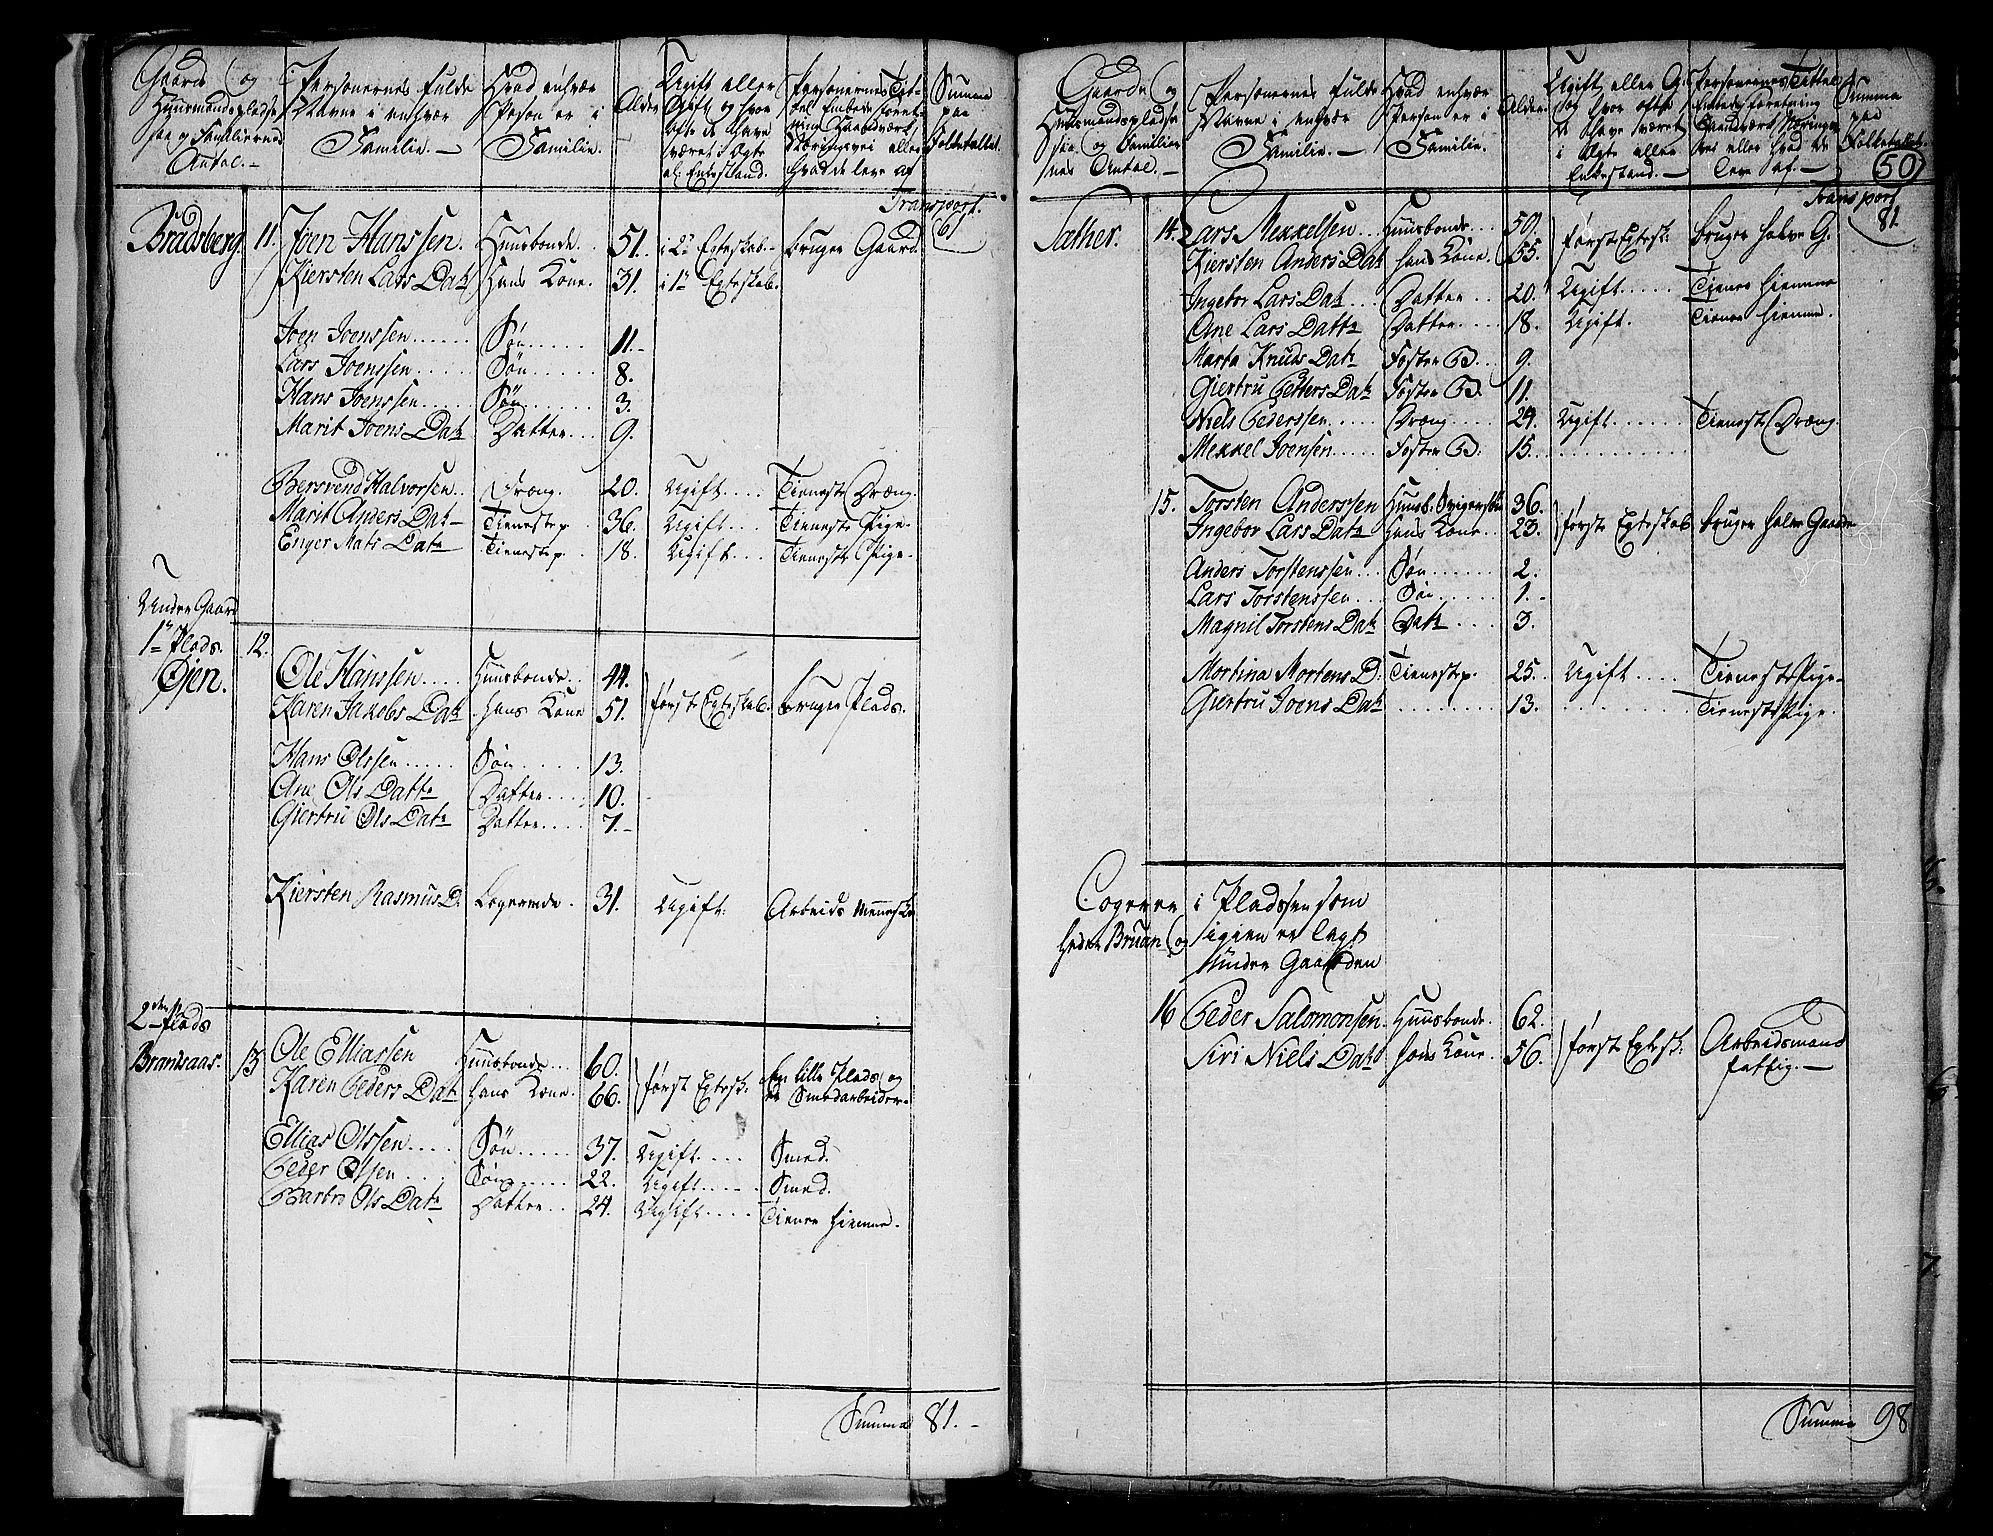 Gaarde og
Huusmandspladse
Familiernes
Antal.
Personernes fulde
Navne i enhvær
Familie.
Hvad enhvær
Person er i
Familie.
Alder
Ugift eller
Gift og hvor
ofte de have
været i Ægte
el: Enkestand.
Personernes Tit-
tel Embede foret-
ning Haandværk
Næringsvei eller
hvad de leve af
Summa
paa
Folketallet.
Transport.
61
Bradsberg. 11. Joen Hanssen. Huusbonde. 51. i 2det Egteskab. bruger Gaard.
Kiersten Lars Datr Hans Kone. 31. i 1te Egteskab.
Joen Joenssen Søn 11.
Lars Joenssen Søn 8.
Hans Joenssen Søn 3.
Marit Joens Datr Datter 9.
Bersvend Halvorsen Dræng. 20. Ugift Tieneste Dræng.
Marit Anders Datr Tienestep. 36. Ugift Tieneste Pige.
Enger Mats Datr Tienestep. 18. Ugift Tieneste Pige.
Under Gaard
1te Plads. 12.
Øjen. Ole Hanssen Huusbonde 44. første Egteskab. bruger Plads.
Karen Jakobs Datr hans Kone 51.
Hans Olssen Søn 13.
Ane Ols Dattr Datter 10.
Giertru Ols Datr Datter 7.
Kiersten Rasmus D. Logerende. 31. Ugift. Arbeids Menneske
2den Plads
Brandsaas. 13 Ole Elliassen Huusbonde 60. først Egtesk. En lille Plads og
Karen Peders Dat hans Kone. 66. er Smedarbeider.
Ellias Olssen Søn 37. Ugift Smed.
Peder Olssen Søn 22. Ugift Smed.
Barbro Ols Datr Datter 24. Ugift Tiener hiemme.
Summa 81.
Gaarde og
Huusmandspladse
og Familier-
nes Antal.
Personernes fulde
Navne i enhvær
Familie.
Hvad enhvær
Person er i
Familie.
Alder
Ugift eller G.
og hvor ofte
de have været
i Ægte eller
Enkestand.
Personernes Tittel
Embedsforretning
Haandværk Næringes
Vei eller hvad de
leve af.
Summa
paa
Folketallet.
50
Transport
81
Sather. 14. Lars Mekkelsen Huusbonde 50. først Egtesk. bruger halve G.
Kiersten Anders Dat hans Kone. 55.
Ingebor Lars Dat Datter 20. Ugift Tiener hiemme
Ane Lars Dattr Datter 18. Ugift. Tiener hiemme.
Marta Knuds Datr Foster B. 9.
Giertru Petters Datr Foster B. 11.
Niels Pederssen Dræng 24. Ugift Tieneste Dræng.
Mekkel Joensen Foster B. 15.
15. Torsten Anderssen Huusb. Svigersøn 36. første Egteskab bruger halve Gaarden
Ingebor Lars Datr Hans Kone 23.
Anders Torstenssen Søn 2.
Lars Torstenssen Søn 1.
Magnil Torstens Datr Datr 3.
Mortina Mortens D. Tienestep. 25. Ugift Tieneste Pige
Giertru Joens Datr 13. Tieneste Pige.
Logerer i Pladssen som
heder Bruan og igien er lagt
Under Gaarden
16 Peder Salomonsen Huusbonde. 62. først Egtesk. Arbeidsmand
Siri Niels Datr hans Kone. 56. fattig.
Summa 98